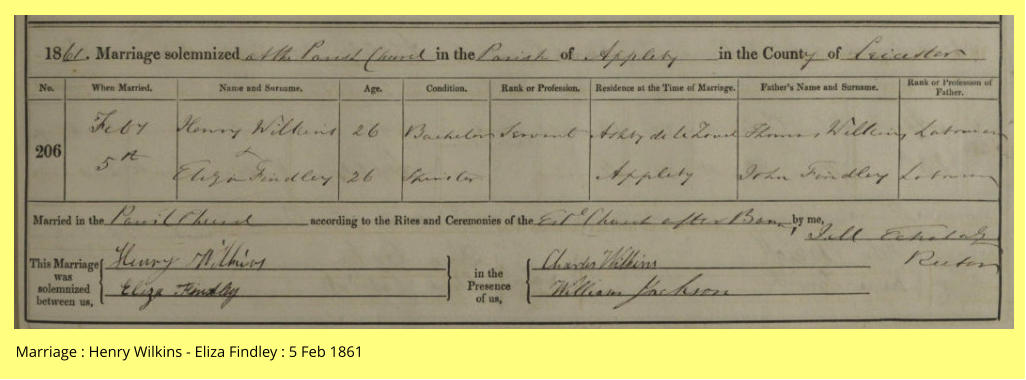 1861. Marriage solemnized at the Parish Church in the Parish of Appleby in the County of Leicester
No. When Married. Name and Surname. Age. Condition. Rank or Profession. Residence at the Time of Marriage. Father's Name and Surname. Rank or Profession of Father.
206
Feby 5th
Henry Wilkins 26 Bachelor Servant Ashby de la Zouch Thomas Wilkins Labourer
Eliza Findley 26 Spinster Appleby John Findley Labourer
Married in the Parish Church according to the Rites and Ceremonies of the Estd Church after Banns by me,
Rector
This Marriage was solemnized between us, Henry Wilkins in the Presence of us, Charles Wilkins
Eliza Findley William Jackson
Marriage : Henry Wilkins - Eliza Findley : 5 Feb 1861